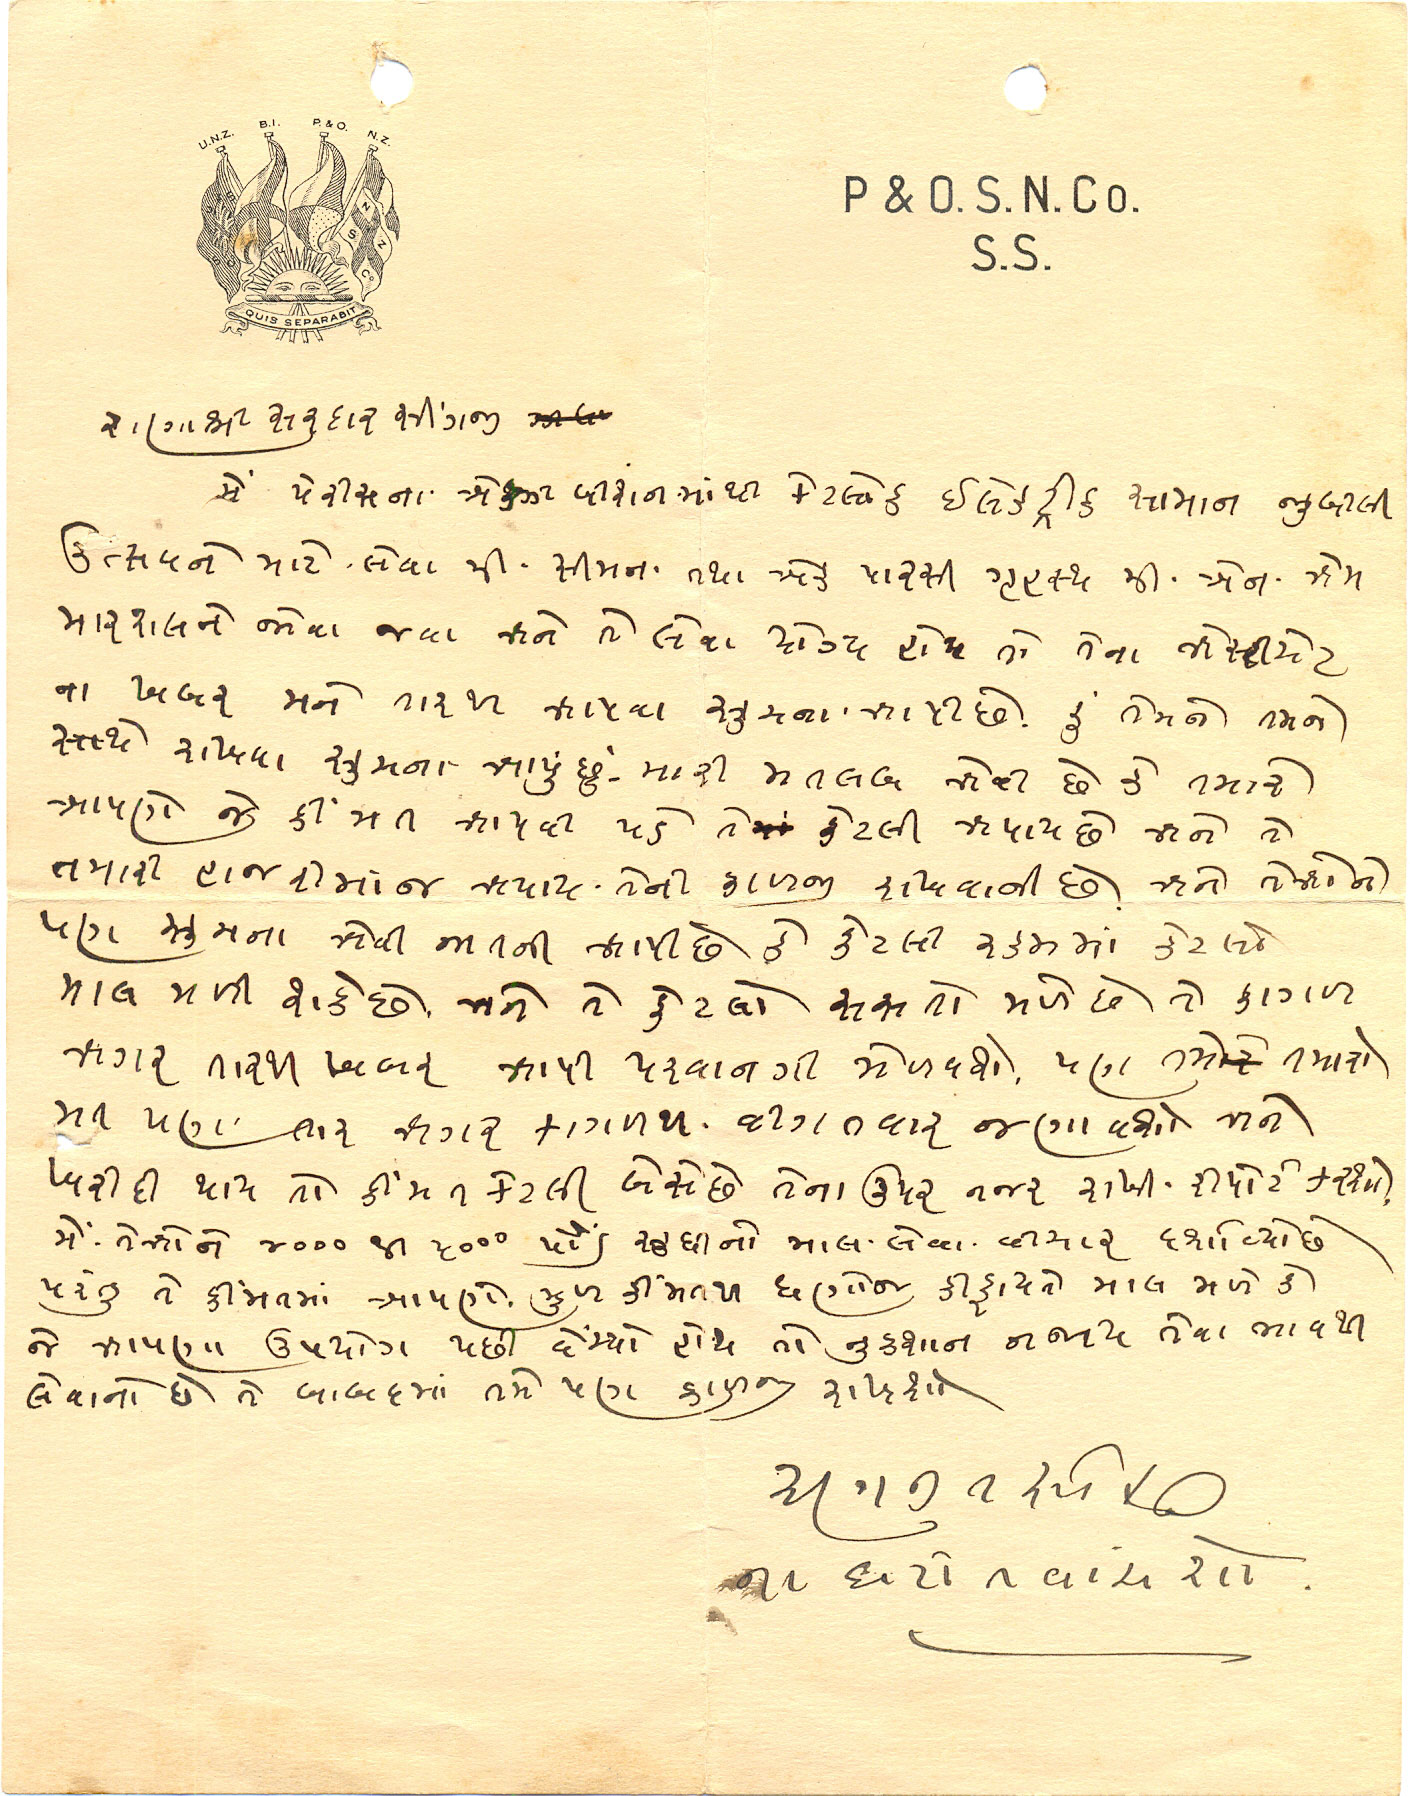 U.N.Z. B.I. P.&O. N.Z.
QUIS SEPARABIT
P & O. S. N. Co.
S.S.
રાણાશ્રી સરદાર સીંગજી
મેં પેરીસના એક્ઝીબીશનમાંથી કેટલોક ઈલેક્ટ્રીક સામાન જ્યુબીલી
ઉત્સવને માટે લેવા મી. સીમન તથા એક પારસી ગૃહસ્થ મી. એન. એમ
મારશલને જોવા જવા અને તે લેવા યોગ્ય હોય તો તેના એસ્ટીમેટ
ના ખબર મને તારથી આપવા સુચના આપી છે. હું તેમને તમને
સાથે રાખવા સુચના આપું છું. મારી મતલબ એવી છે કે તમારે
આપણે જે કીંમત આપવી પડે તે કેટલી અપાય છે અને તે
તમારી હાજરીમાંજ અપાય તેની કાળજી રાખવાની છે. અને તેઓને
પણ સુચના એવી જાતની આપી છે કે કેટલી રકમમાં કેટલો
માલ મળી શકે છે. અને તે કેટલો સસતો મળે છે તે કાગળ
અગર તારથી ખબર આપી પરવાનગી મેળવશો. પણ તમારો
મત પણ તાર અગર કાગળથી વીગતવાર જણાવશો અને
ખરીદી થાય તો કીંમત કેટલી બેસે છે તેના ઉપર નજર રાખી રીપોર્ટ કરશો.
મેં તેઓને ૪૦૦૦ થી ૫૦૦૦ પૌંડ સુધીનો માલ લેવા વીચાર દર્શાવ્યો છે
પરંતુ તે કીંમતમાં આપણે મુળ કીંમતથી ઘણોજ કીફાયતે માલ મળે કે
જે આપણા ઉપયોગ પછી વેંચ્યો હોય તો નુકશાન ન જાય તેવા ભાવથી
લેવાનો છે તે બાબદમાં તમે પણ કાળજી રાખશો
ના ઘટીત વાંચશો.